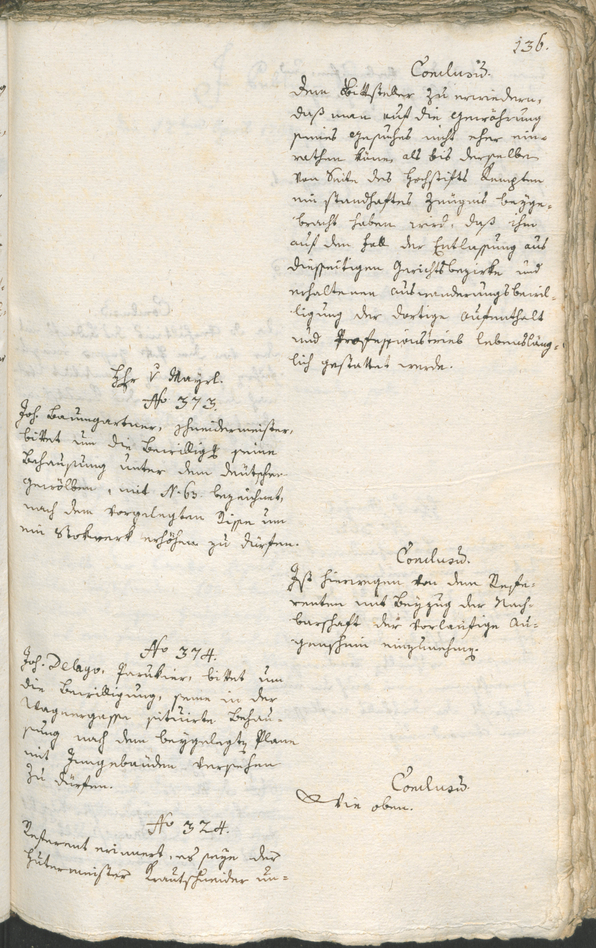 136.
Conclusum.
dem Bittsteller zu erwiedern,
daß man auf die Gewährung
seines Gesuches nicht eher ein-
rathen könne, als bis derselbe
von Seite des Hochstifts Kempten
ein standhaftes Zeugnis beyge-
bracht haben wird, daß ihm
auf den Fall der Entlassung aus
diesseitigen Gerichtsbezirke und
erhaltenen Auswanderungsbewil-
ligung der dortige Aufenthalt
und Professionstrieb lebensläng-
lich gestattet werde.
Hr v Mayrl.
No 373.
Joh. Baumgartner, Schneidermeister,
bittet um die Bewilligg seine
Behausung unter dem deutschen
Gewölben, mit N. 63 bezeichnet,
nach dem vorgelegten Risse um
ein Stokwerk erhöhen zu dürfen.
Conclusum.
Ist hierwegen von dem Refe-
renten mit Beyzug der Nach-
barschaft der vorläufige Au-
genschein einzunehmen.
No 374.
Joh. Delago, Parukier, bittet um
die Bewilligung, seine in der
Wagnergasse situirte Behau-
sung nach dem beygelegten Plane
mit Zungebäuden versehen
zu dürfen.
Conclusum.
Wie oben.
No 324.
Referent erinnert, es seye der
Hutermeister Krautschneider un-